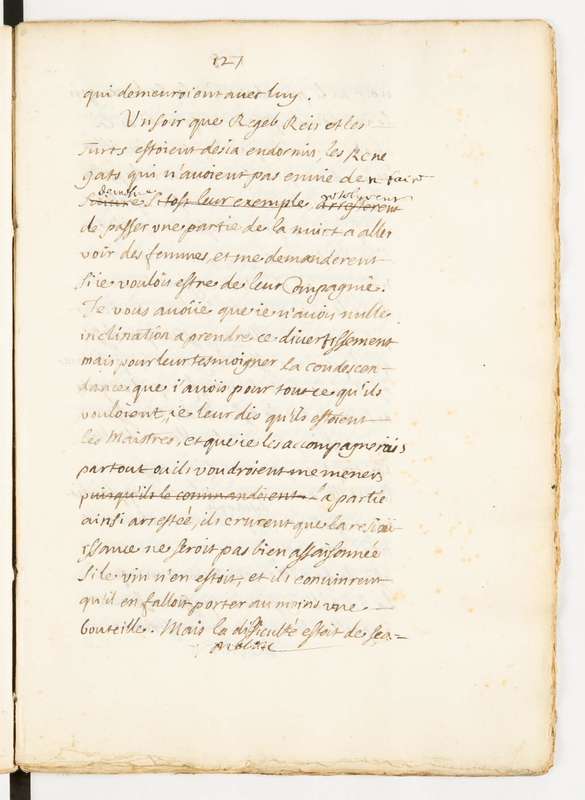 127
qui demeuroient auec luy.
Un soir que Regeb Reis et les
Turcs estoient desia endormis, les Rene
gats qui n'auoient pas enuie d'en faire
de mesme resolurent
si tost leur exemple arresterent
de passer vne partie de la nuict a aller
voir des femmes, et me demanderent
si ie voulois estre de leur Compagnie.
Je vous auoüe que ie n'auois nulle
inclination a prendre ce diuertissement
mais pour leur tesmoigner la condescen-
dance que i'auois pour tout ce qu'ils
vouloient, ie leur dis qu'ils estoient
les Maistres, et que ie les accompagnerois
partout ou ils voudroient me mener
puisqu'ils le commandoient la partie
ainsi arrestée, ils crurent que la resioü
issance ne seroit pas bien assaisonnée
si le vin n'en estoit, et ils conuinrent
qu'il en falloit porter au moins vne
bouteille. Mais la difficulté estoit de sça=